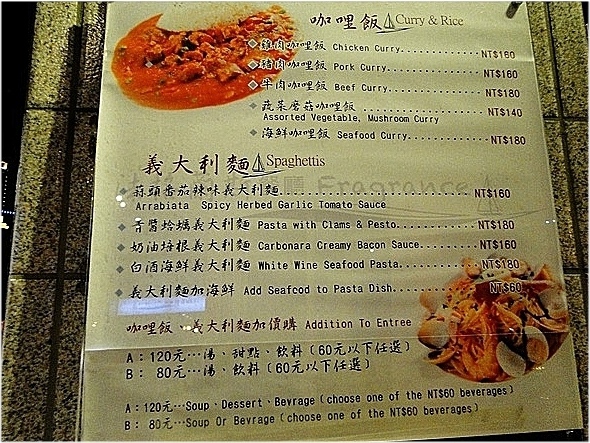 咖哩飯 Curry & Rice
雞肉咖哩飯 Chicken Curry................NT$160
豬肉咖哩飯 Pork Curry................NT$160
牛肉咖哩飯 Beef Curry................NT$180
蔬菜蘑菇咖哩飯................NT$140
Assorted Vegetable, Mushroom Curry
海鮮咖哩飯 Seafood Curry................NT$180
義大利麵 Spaghettis
Fragrance
蒜頭番茄辣味義大利麵................NT$160
Arrabiata Spicy Herbed Garlic Tomato Sauce
青醬蛤蠣義大利麵 Pasta with Clams & Pesto........NT$180
奶油培根義大利麵 Carbonara Creamy Bacon Sauce........NT$160
白酒海鮮義大利麵 White Wine Seafood Pasta........NT$180
義大利麵加海鮮 Add Seafood to Pasta Dish........NT$60
咖哩飯、義大利麵加價購 Addition To Entree
A：120元…湯、甜點、飲料（60元以下任選）
B： 80元…湯、飲料（60元以下任選）
A：120元…Soup、Dessert、Bevrage（choose one of the NT$60 beverages）
B： 80元…Soup Or Bevrage（choose one of the NT$60 beverages）